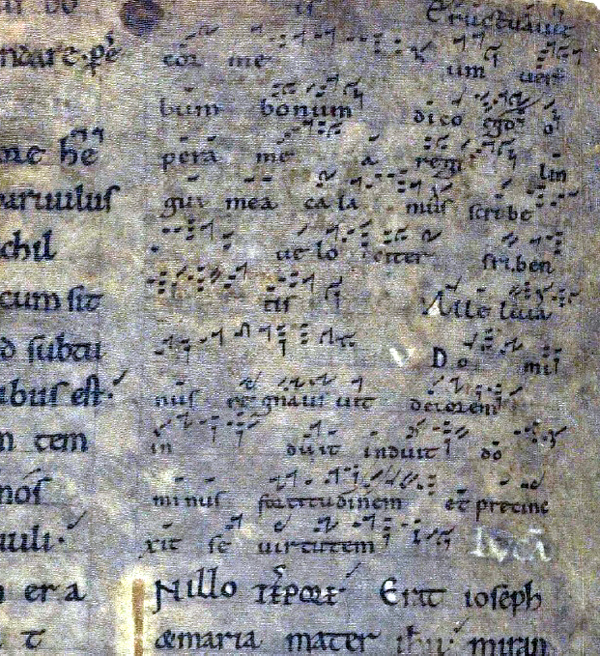 ndare pē
ne hē
paruulus
chil
cum sit
d subtu
ibus est
m tem
nos
uuli
era
t
Eructauit
cor me um uer
bum bonum dico ego o
pera me a regi lin
gua mea ca la mus scribe
ue lo citer
scriben
tis Alle luia
Do mi
nus re gnauit decorem
in duit induit do
mi nus fortitudinem et precinc
xit se uirtutem
N illo Erat ioseph
&maria mater ihu miran